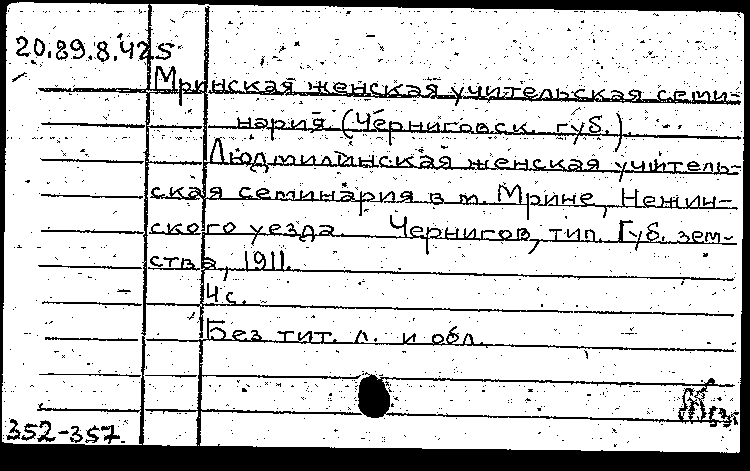 20.89.8.425
Мринская женская учительская семи-
нария (Черниговск. губ.).
Людмилинская женская учитель-
ская семинария в м. Мрине, Нежин-
ского уезда. Чернигов, тип. Губ. зем-
ства, 1911.
4 с.
Без тит. л. и обл.
352-357